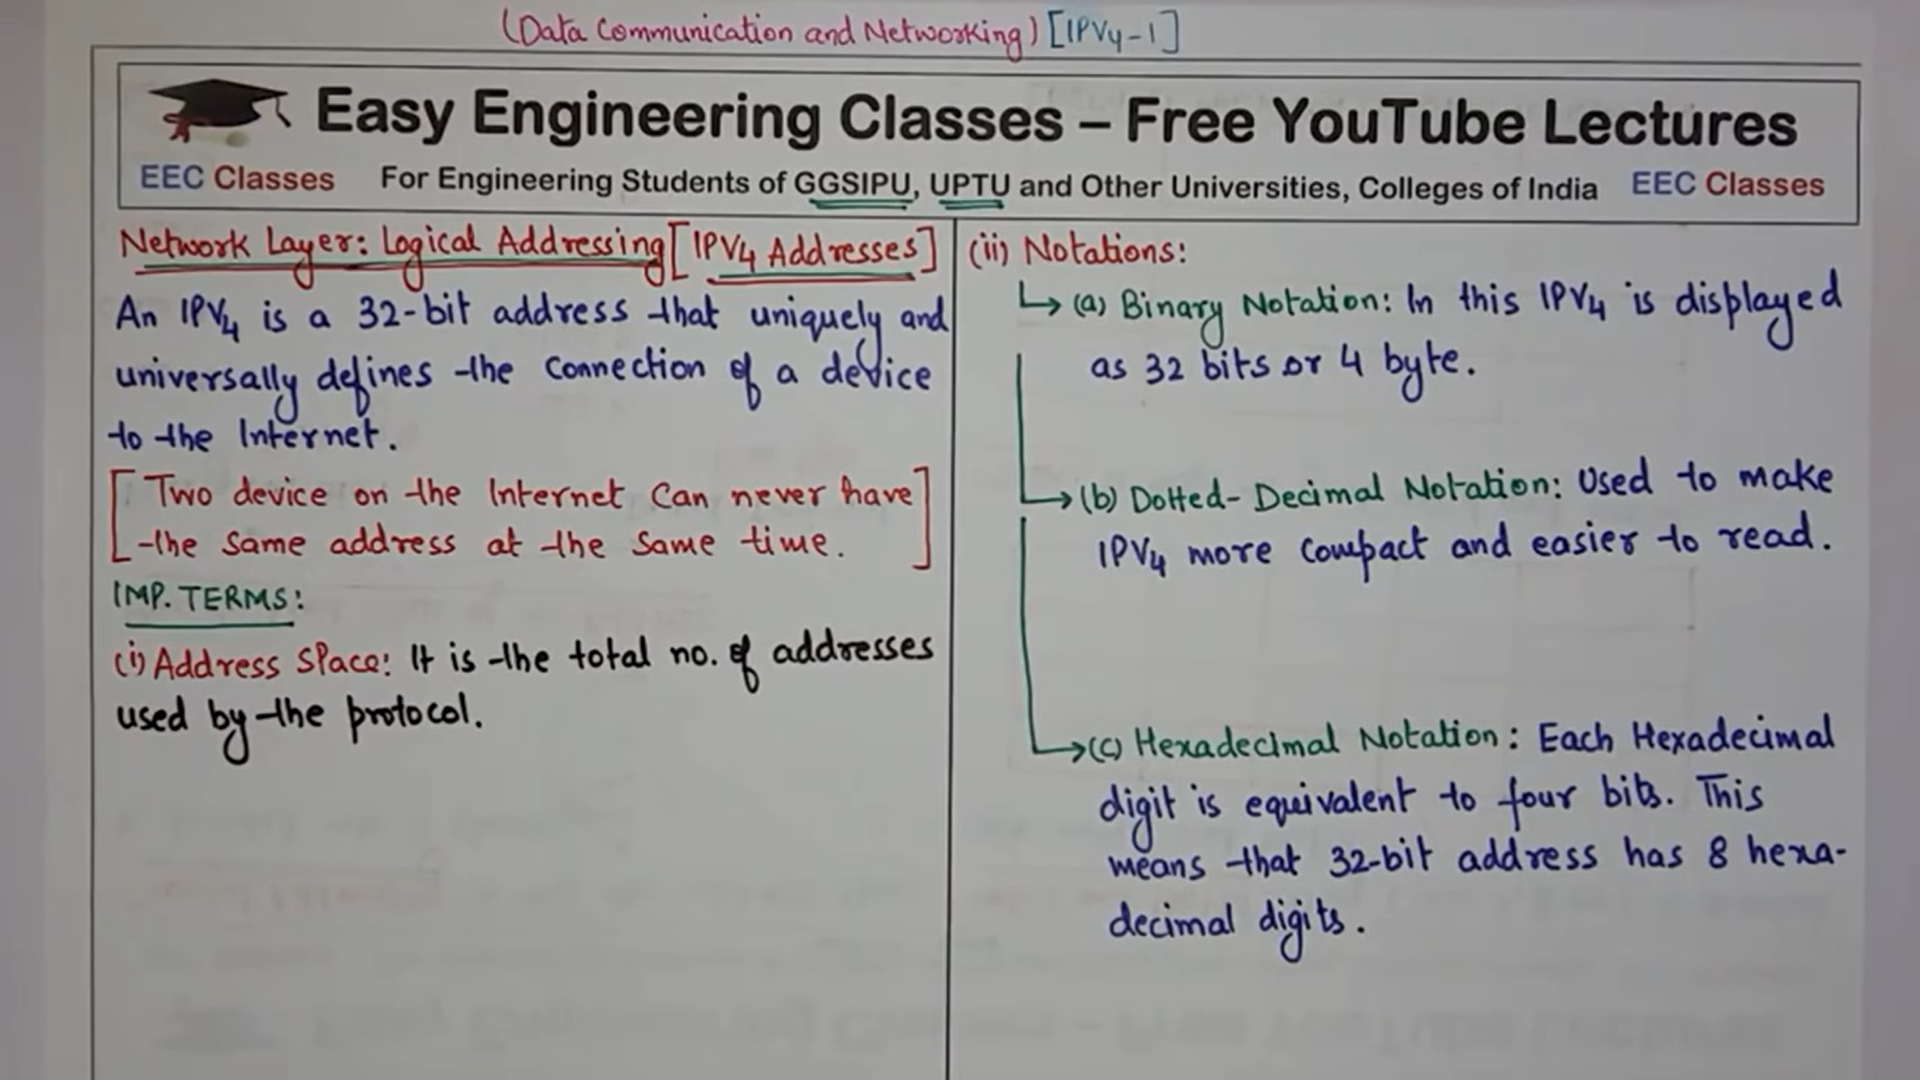 (Data Communication and Networking) [IPV4-1]
Easy Engineering Classes – Free YouTube Lectures
EEC Classes For Engineering Students of GGSIPU, UPTU and Other Universities, Colleges of India EEC Classes
Network Layer: Logical Addressing [IPV4 Addresses]
An IPV4 is a 32-bit address that uniquely and
universally defines the connection of a device
to the Internet.
[Two device on the Internet Can never have
the same address at the same time.]
IMP. TERMS:
(i) Address Space: It is the total no. of addresses
used by the protocol.
(ii) Notations:
↳ (a) Binary Notation: In this IPV4 is displayed
as 32 bits or 4 byte.
→ (b) Dotted-Decimal Notation: Used to make
IPV4 more compact and easier to read.
→ (c) Hexadecimal Notation: Each Hexadecimal
digit is equivalent to four bits. This
means that 32-bit address has 8 hexa-
decimal digits.